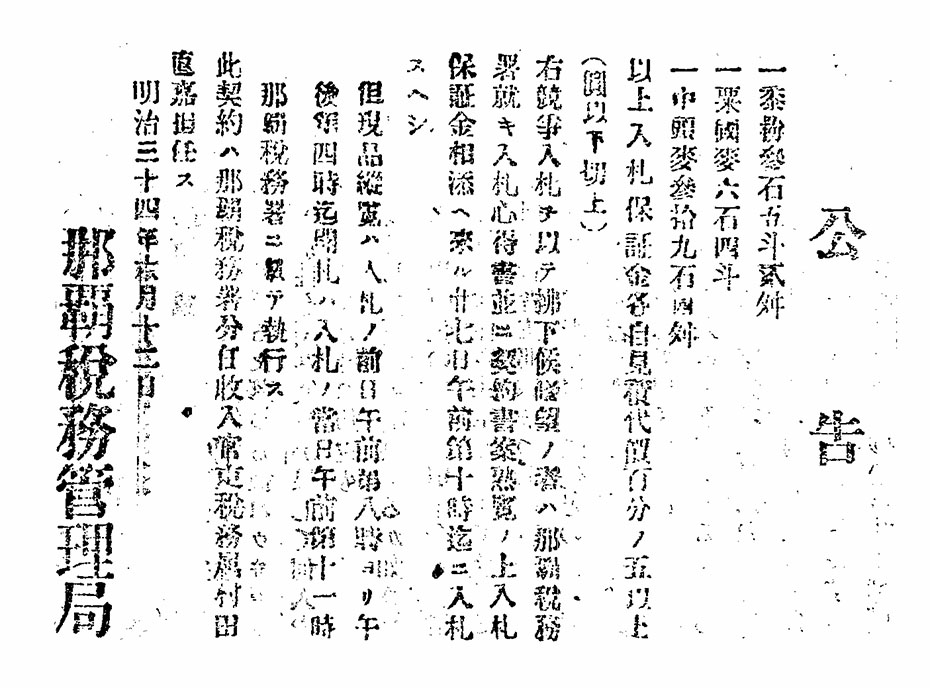 公告
一黍粉參石五斗貳舛
一粟國麥六石四斗
一中頭麥參拾九石四舛
以上入札保証金各自見積代價百分ノ五以上
(圓以下切上)
右競爭入札ヲ以テ拂下候條望ノ者ハ那覇稅務
署就キ入札心得書並ニ契約書案熟覽ノ上入札
保証金相添ヘ來ル廿七日午前第十時迄ニ入札
スヘシ
但現品縱覽ハ入札ノ前日午前第八時ヨリ午
後第四時迄開札ハ入札ノ當日午前第十一時
那覇稅務署ニ於テ執行ス
此契約ハ那覇稅務署分任收入官吏稅務屬村田
直嘉担任ス
明治三十四年 月十三日
那覇稅務管理局